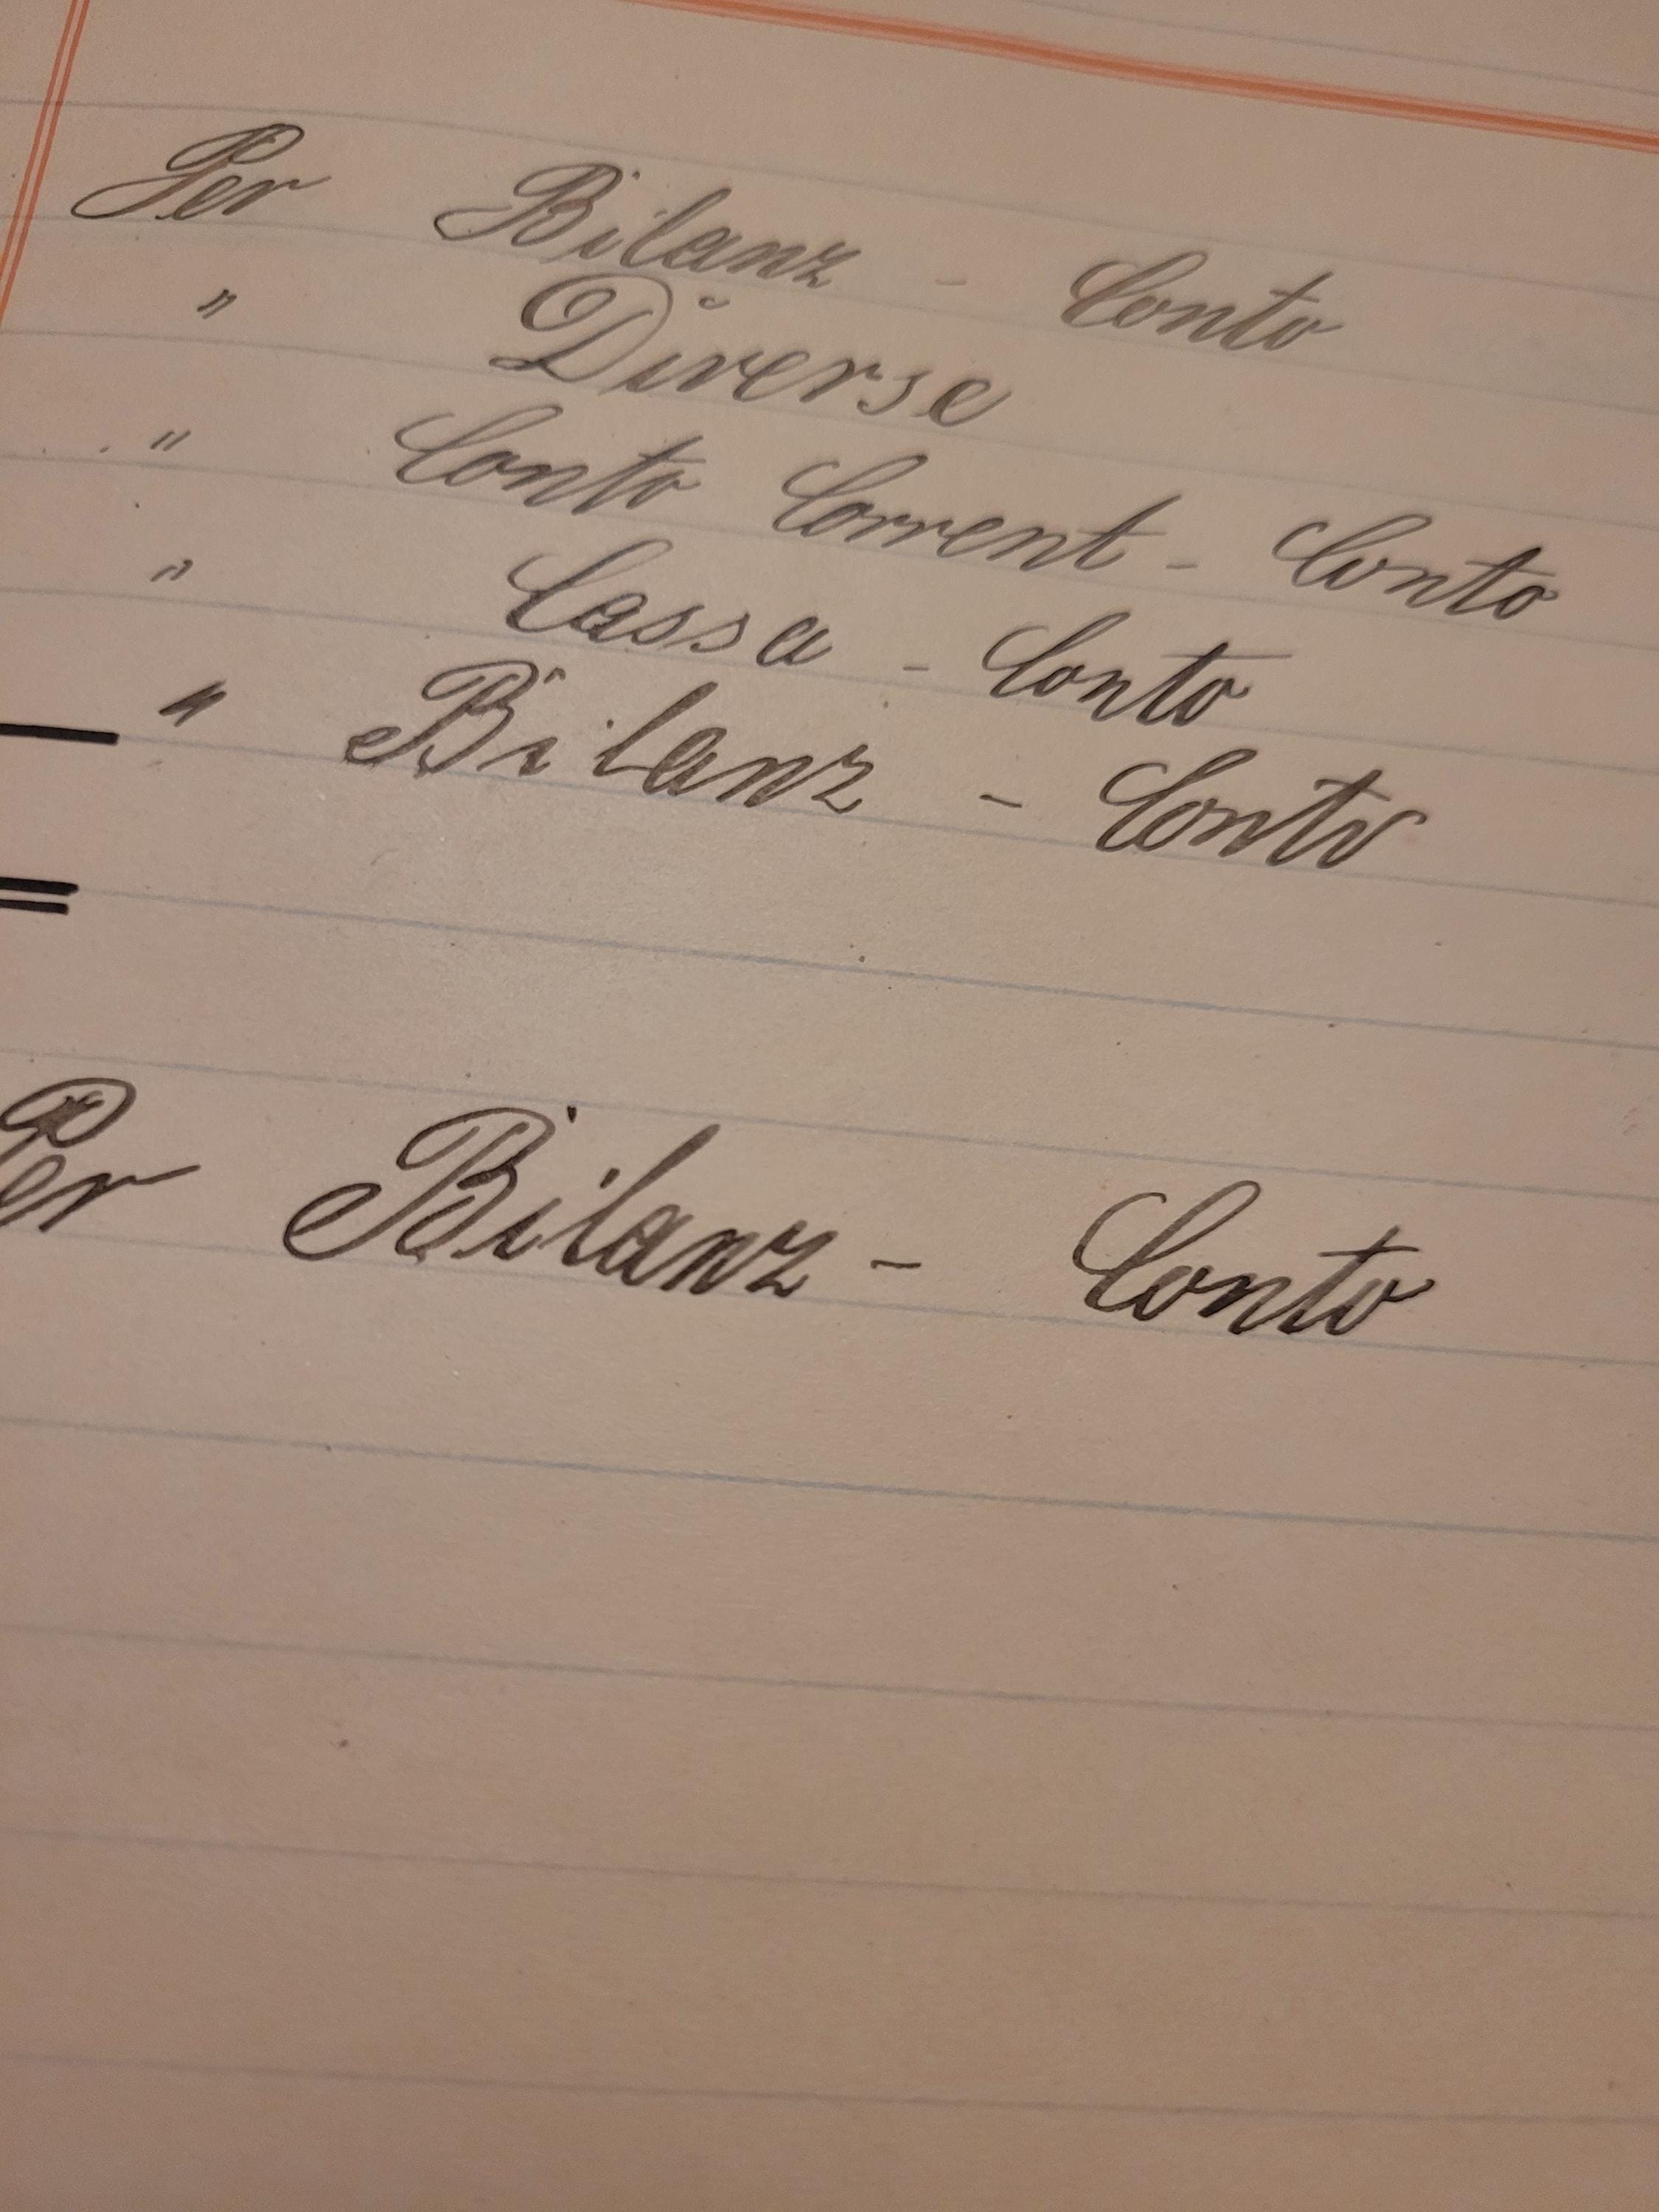 Per Bilanz - Conto
" Diverse
" Conto Corrent - Conto
" Cassa - Conto
" Bilanz - Conto
Per Bilanz - Conto